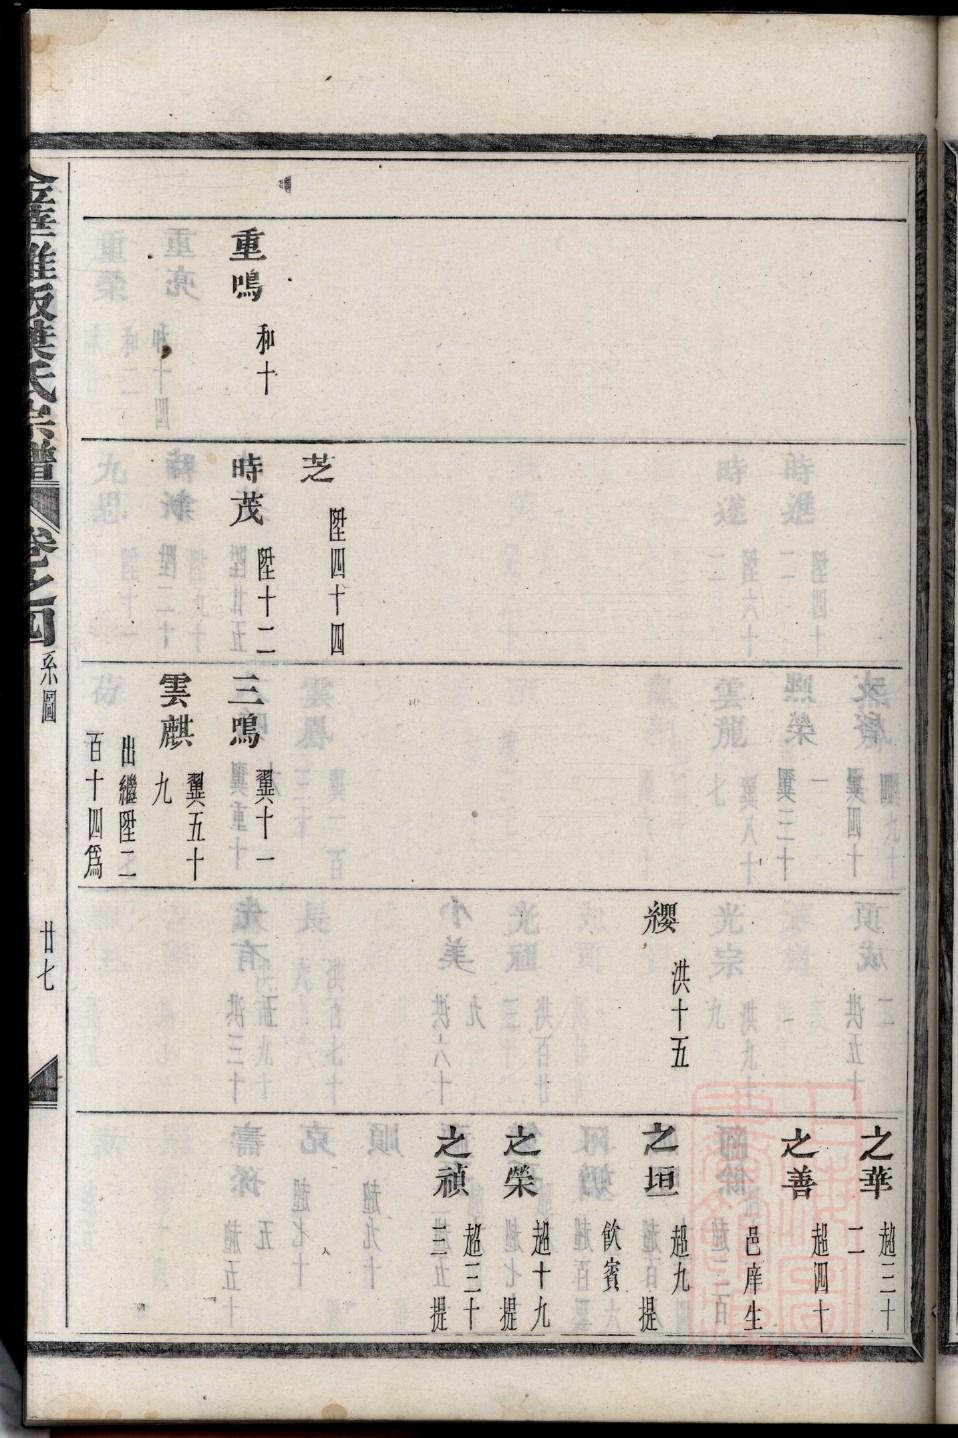 重鳴
和十
芝
陞四十四
時茂
陞十二
三鳴
翼十一
雲麒
翼五十
九
出繼陞二
百十四爲
纓
洪十五
之華
超三十
二
之善
超四十
邑庠生
之垣
超九提
飲賓
之榮
超十九
提
之禎
超三十
三提
金華雅畈葉氏宗譜
卷之四
系圖
廿七